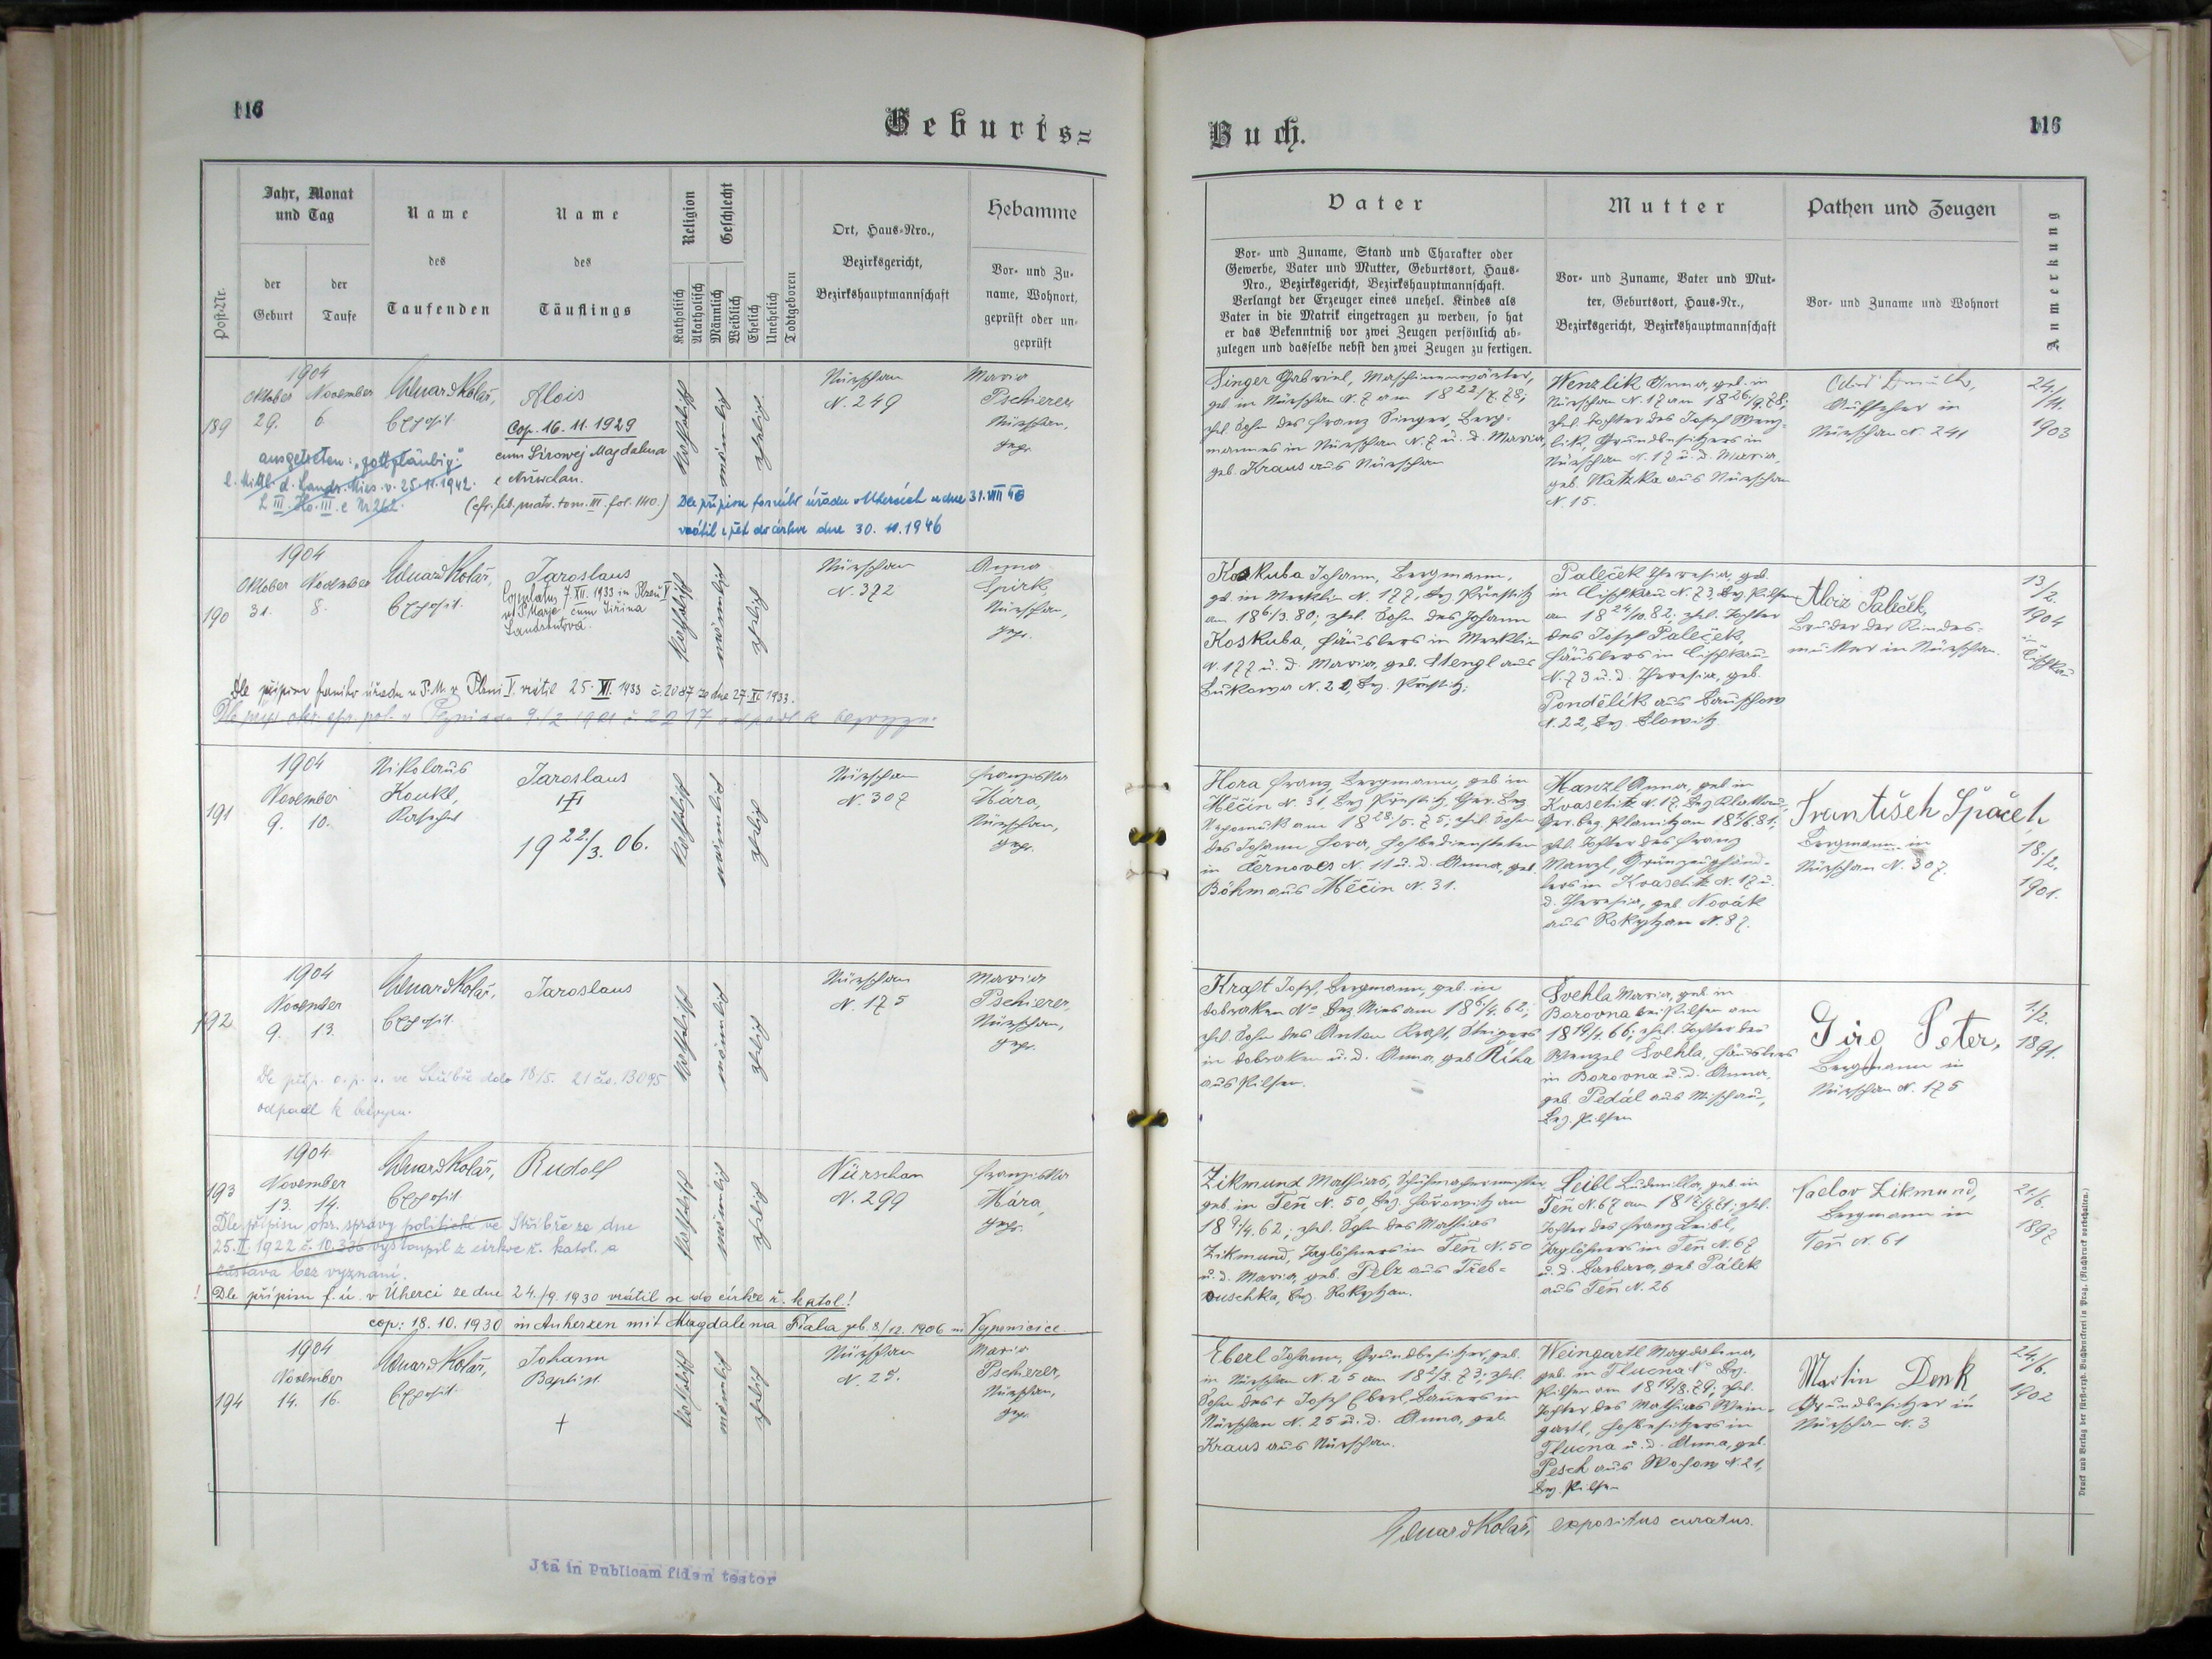 116
Geburts=
Jahr, Monat
und Tag
der
Geburt
der
Taufe
Post-Nr.
Name
des
Taufenden
Name
des
Täuflings
Religion
Katholisch
Akatholisch
Geschlecht
Männlich
Weiblich
Ehelich
Unehelich
Todtgeboren
Ort, Haus-Nro.,
Bezirksgericht,
Bezirkshauptmannschaft
Hebamme
Vor- und Zu-
name, Wohnort,
geprüft oder un-
geprüft
189
1904
Oktober November
29. 6.
Eduard Kolář,
Exposit.
Alois
Cop. 16. 11. 1929
cum Sirowej Magdalena
e Nürschan.
(cfr. lib. matr. tom. III. fol. 140.)
ausgetreten: "gottgläubig"
l. Mittl. d. Landr. Mies v. 25.11.1942.
katholisch
männlich
ehelich
Nürschan
N. 249
Maria
Pschierer
Nürschan,
gepr.
Dle přípisu farního úřadu v Úhercích ze dne 31. VIII 46
vrátil zpět do církve dne 30. 11. 1946
190
1904
Oktober November
31. 8.
Eduard Kolář,
Exposit.
Jaroslaus
Copulatus 7. XII. 1933 in Plzeň V
ad P. Marie cum Jiřina
Landsutová.
katholisch
männlich
ehelich
Nürschan
N. 372
Anna
Spirk,
Nürschan,
gepr.
Dle přípisu farního úřadu u P. M. v Plzni I. vrátil 25. XI. 1933 č. 2087 ze dne 27. XI 1933.
191
1904
November
9. 10.
Nikolaus
Koukl,
Jaroslaus
19 22/3. 06.
katholisch
männlich
ehelich
Nürschan
N. 307
Franziska
Hára,
Nürschan,
gepr.
192
1904
November
9. 13.
Eduard Kolář,
Exposit.
Jaroslaus
katholisch
männlich
ehelich
Nürschan
N. 175
Maria
Pschierer,
Nürschan,
gepr.
Dle příp. o. p. s. ve Stříbře dato 18/5. 21 čís. 13095
odpadl k bezvyzn.
193
1904
November
13. 14.
Eduard Kolář,
Exposit.
Rudolf
katholisch
männlich
ehelich
Nürschan
N. 299
Franziska
Hára,
gepr.
Dle přípisu okr. správy politické ve Stříbře ze dne
25. II. 1922 č. 10.336 vystoupil z církve ř. katol. a
zůstává bez vyznání.
! Dle přípisu f. ú. v Úherci ze dne 24./9. 1930 vrátil se do církve ř. katol!
cop: 18. 10. 1930 in Auherzen mit Magdalena Fiala geb. 8/12. 1906 in
194
1904
November
14. 16.
Eduard Kolář,
Exposit.
Johann
Baptist.
katholisch
männlich
ehelich
Nürschan
N. 25.
Maria
Pschierer,
Nürschan,
gepr.
Jta in Publicam fidem testor
Buch.
116
Vater
Vor- und Zuname, Stand und Charakter oder
Gewerbe, Vater und Mutter, Geburtsort, Haus-
Nro., Bezirksgericht, Bezirkshauptmannschaft.
Verlangt der Erzeuger eines unehel. Kindes als
Vater in die Matrik eingetragen zu werden, so hat
er das Bekenntniß vor zwei Zeugen persönlich ab-
zulegen und dasselbe nebst den zwei Zeugen zu fertigen.
Mutter
Vor- und Zuname, Vater und Mut-
ter, Geburtsort, Haus-Nr.,
Bezirksgericht, Bezirkshauptmannschaft
Pathen und Zeugen
Vor- und Zuname und Wohnort
Anmerkung
Singer Gabriel, Maschinenwärter,
geb. in Nürschan N. 7 am 18 22/7. 78;
ehel. Sohn des Franz Singer, Berg-
mannes in Nürschan N. 7 u. d. Maria,
geb. Kraus aus Nürschan
Wenzlik Anna, geb. in
Nürschan N. 17 am 18 26/9. 78;
ehel. Tochter des Josef Wenz-
lik, Grundbesitzers in
Nürschan N. 17 u. d. Maria,
geb. Watzka aus Nürschan
N. 15.
Aufseher in
Nürschan N. 241
24/
11.
1903
Koskuba Johann, Bergmann,
geb. in Merklin N. 177, Bez. Přestitz
am 18 6/3. 80; ehel. Sohn des Johann
Koskuba, Häuslers in Merklin
N. 177 u. d. Maria, geb. Mengl aus
Bukowa N. 20, Bez. Přestitz.
Paleček Theresia, geb.
in Lischkau N. 73, Bez. Pilsen
am 18 24/10. 82; ehel. Tochter
des Josef Paleček,
Häuslers in Lischkau
N. 73 u. d. Theresia, geb.
Pondělík aus
N. 22, Bez. Blowitz.
Aloiz Paleček,
Bruder der Kindes-
mutter in Nürschan.
13/
2.
1904
in
Lischkau
Hora Franz, Bergmann, geb. in
Měčín N. 31, Bez. Přestitz, Ger. Bez.
Nepomuk am 18 28/5. 75; ehel. Sohn
des Johann Hora,
in Černoves N. 11 u. d. Anna, geb.
Böhm aus Měčín N. 31.
Manzl Anna, geb. in
Kvasetitz N. 17, Bez. Klattau,
Ger. Bez. Planitz am
ehel. Tochter des Franz
Manzl, Grünzeughänd-
lers in Kvasetitz N. 17 u.
d. Theresia, geb. Novák
aus Rokytzan N. 87.
František Špaček
Bergmann in
Nürschan N. 307.
18./
2.
1901.
Kraft Josef, Bergmann, geb. in
Dobraken N° Bez. Mies am 18 6/4. 62;
ehel. Sohn des Anton Kraft, Steigers
in Dobraken u. d. Anna, geb. Říha
aus Pilsen.
Švehla Maria, geb. in
Borovna bei Pilsen am
18 19/1. 66; ehel. Tochter des
Wenzel Švehla, Häuslers
in Borovna u. d. Anna,
geb. Pedál aus
Bez. Pilsen
Jirg Peter,
Bergmann in
Nürschan N. 175
1/2.
1891.
Zikmund Mathias, Schuhmachermeister,
geb. in Teň N. 50, Bez. Hořowitz am
18 9/4. 62; ehel. Sohn des Mathias
Zikmund, Taglöhners in Teň N. 50
u. d. Maria, geb. Pelz aus Třeb-
ouschka, Bez. Rokytzan.
Leibl Ludmilla, geb. in
Teň N. 67 am
Tochter des Franz Leibl,
Taglöhners in Teň N. 67
u. d. Barbara, geb. Pálek
aus Teň N. 26
Vaclav Zikmund,
Bergmann in
Teň N. 61
21/6.
1897
Eberl Johann, Grundbesitzer, geb.
in Nürschan N. 25 am 18 2/2. 73; ehel.
Sohn des + Josef Eberl, Bauers in
Nürschan N. 25 u. d. Anna, geb.
Kraus aus Nürschan.
Weingartl Magdalena,
geb. in Tlucna N° Bez.
Pilsen am 18 19/8. 79; ehel.
Tochter des Mathias Wein-
gartl, Hofbesitzers in
Tlucna u. d. Anna, geb.
Pesch aus Wochow N. 21,
Bez. Pilsen
Martin Denk
Grundbesitzer in
Nürschan N. 3
24./
6.
1902
Eduard Kolář, expositus curatus.
Druck und Verlag der fürst-erzb. Buchdruckerei in Prag. (Nachdruck vorbehalten.)